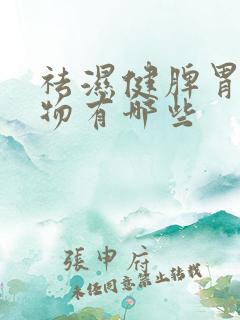 祛濕健脾胃
物有哪些
張申府
未经同意禁止转载